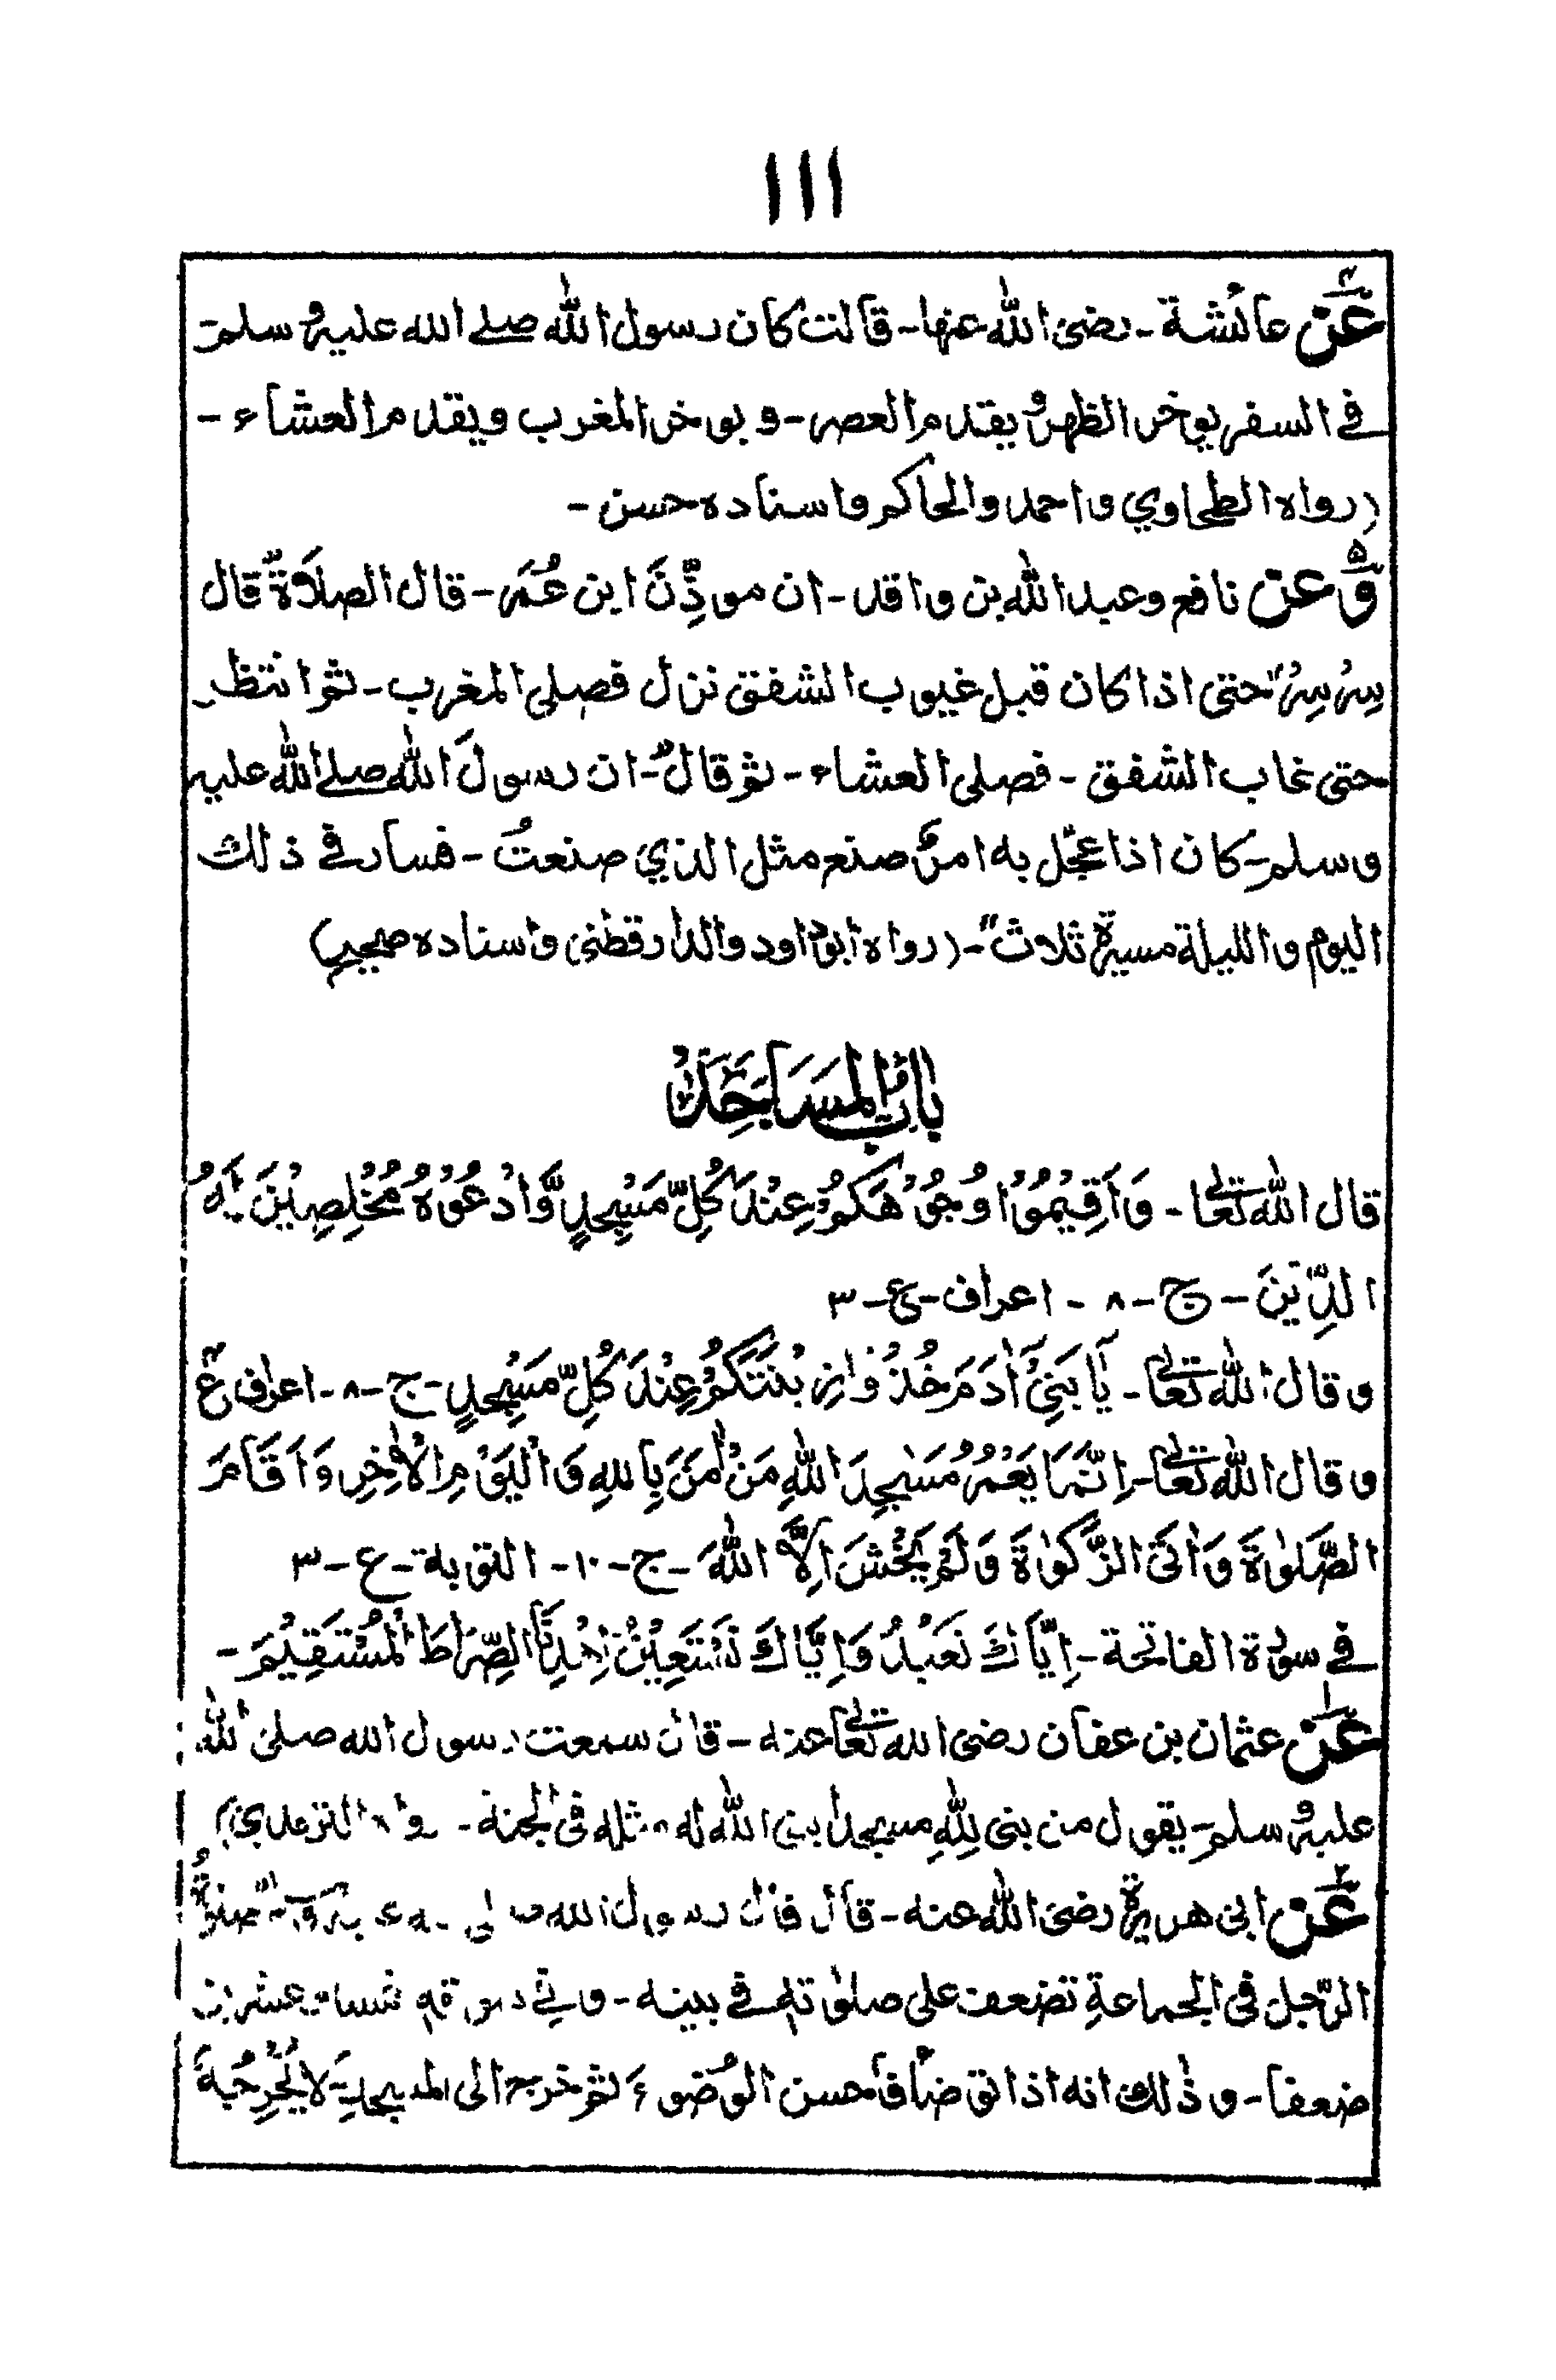 ١١١
عَنْ عائشة - رضى الله عنها - قالت كان رسول الله صلے الله عليه وسلم
فے السفر يوخر الظهر ويقدم العصر - و يوخر المغرب ويقدم العشاء -
(رواه الطحاوي واحمد والحاكم واسناده حسن -
وَّعن نافع وعبد الله بن واقد - ان موذِّنَ ابن عُمَر - قال الصلَاة قال
سِرْ سِرْ حتى اذا كان قبل غيوب الشفق نزل فصلى المغرب - ثم انتظر
حتى غاب الشفق - فصلى العشاء - ثم قال - ان رسولَ الله صلے الله عليه
وسلم - كان اذا عجّل به امرٌ صنع مثل الذي صنعتُ - فسار فے ذلك
اليوم والليلة مسيرة ثلاث - (رواه ابو داود والدارقطنى واسناده صحيح)
بابُ المَسَاجِدْ
قال الله تعالى - وَاَقِيْمُوْا وُجُوْهَكُمْ عِنْدَ كُلِّ مَسْجِدٍ وَّادْعُوْهُ مُخْلِصِيْنَ لَهُ
الدِّيْنَ - ج - ٨ - اعراف - ع - ٣
وقال الله تعالى - يَا بَنِىْ اٰدَمَ خُذُوْا زِيْنَتَكُمْ عِنْدَ كُلِّ مَسْجِدٍ - ج - ٨ - اعراف ع٣
وقال الله تعالى - اِنَّمَا يَعْمُرُ مَسٰجِدَ اللّٰهِ مَنْ اٰمَنَ بِاللهِ وَالْيَوْمِ الْاٰخِرِ وَاَقَامَ
الصَّلٰوةَ وَاٰتَى الزَّكٰوةَ وَلَمْ يَخْشَ اِلَّا اللّٰهَ - ج - ١٠ - التوبة - ع - ٣
فے سورة الفاتحة - اِيَّاكَ نَعْبُدُ وَاِيَّاكَ نَسْتَعِيْنُ اِهْدِنَا الصِّرَاطَ الْمُسْتَقِيْمَ -
عَنْ عثمان بن عفان رضى الله تعالى عنه - قال سمعت رسول الله صلى الله
عليه وسلم - يقول من بنى لِلّٰهِ مسجدا بنى الله له مثله فى الجنة - الترمذي)
عَنْ ابى هريرة رضى الله عنه - قال قال رسول الله صلى
الرّجل فى الجماعةِ تضعف على صلوٰته فے بيته - وفے سوقه خمسا وعشرين
ضعفا - وذٰلك انه اذا توضأ فأحسن الوُضوءَ ثم خرج الى المسجدِ - لَا يُخْرِجُهُ